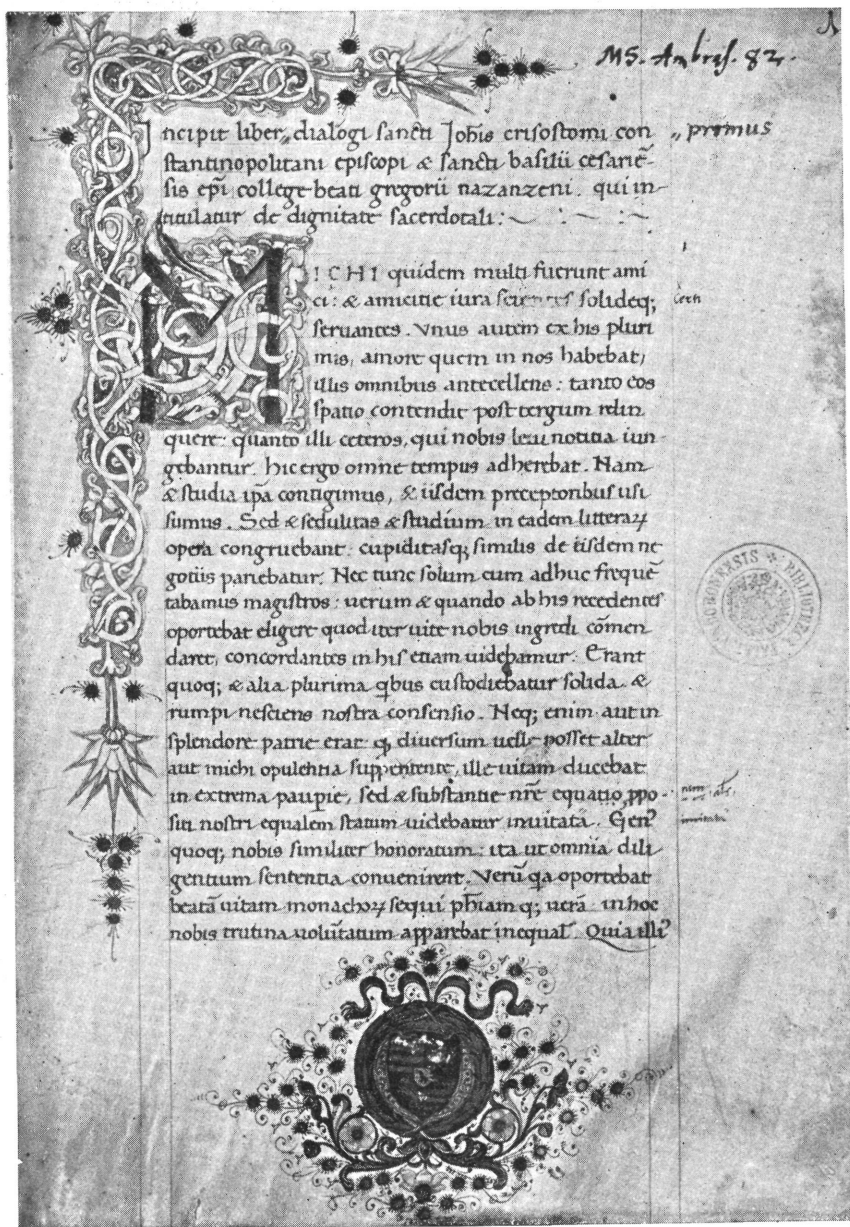 MS. Ambras. 82.
Incipit liber „ dialogi sancti Johis crisostomi con „ primus
stantinopolitani episcopi & sancti basilii cesariē-
sis epi college beati gregorii nazanzeni. qui in-
titulatur de dignitate sacerdotali:
MICHI quidem multi fuerunt ami
ci: & amicitie iura scientes solideq;
seruantes. Vnus autem ex his pluri
mis, amore quem in nos habebat,
illis omnibus antecellens: tanto eos
spatio contendit post tergum relin
quere: quanto illi ceteros, qui nobis leui notitia iun-
gebantur. hic ergo omne tempus adherebat. Nam
& studia ipa contigimus, & iisdem preceptoribus usi
sumus. Sed & sedulitas & studium in eadem litteraꝝ
opera congruebant: cupiditasq; similis de iisdem ne
gotiis pariebatur. Nec tunc solum cum adhuc frequē
tabamus magistros: uerum & quando ab his recedentes
oportebat eligere quod iter uite nobis ingredi cōmen
daret, concordantes in his etiam uidebamur. Erant
quoq; & alia plurima qbus custodiebatur solida &
rumpi nesciens nostra consensio. Neq; enim aut in
splendore patrie erat q, diuersum uelle posset alter
aut michi opulentia suppetente, ille uitam ducebat
in extrema paupie, sed & substantie nrē equatio ppo-
siti nostri equalem statum uidebatur inuitata. Genꝰ
quoq; nobis similiter honoratum: ita ut omnia dili
gentium sententia conuenirent. Verū qa oportebat
beatā uitam monachoꝝ sequi phiamq; uerā in hoc
nobis trutina uolūtatum apparebat inequal. Quia illiꝰ